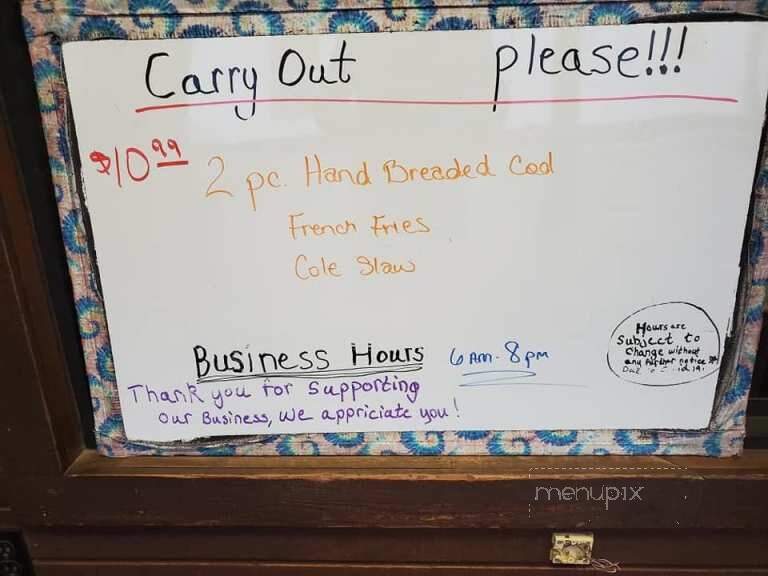 Carry Out please!!!
$10.99 2 pc. Hand Breaded Cod
French Fries
Cole Slaw
Business Hours 6 AM-8 PM
Thank you for supporting
our Business, We appriciate you!
Hours are
subject to
change without
any further notice
menupix